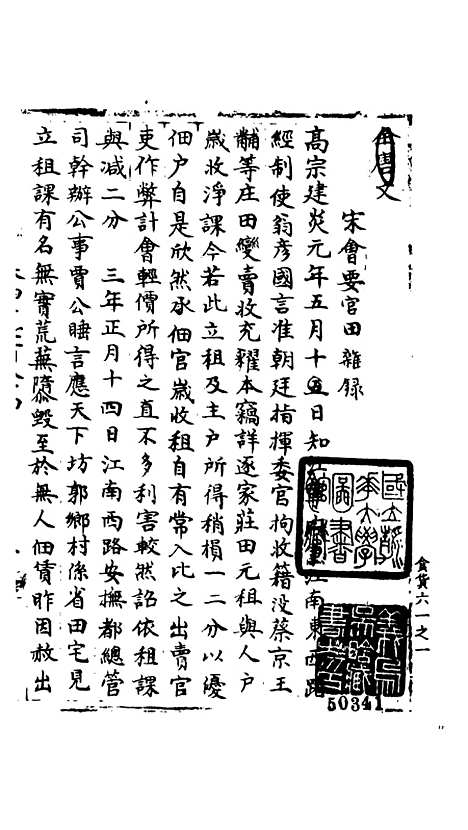 全唐文
宋會要官田雜錄
高宗建炎元年五月十五日知江寧府兼江南東西路
經制使翁彥國言准朝廷指揮委官拘收籍没蔡京王
黼等庄田變賣收充糴本竊詳逐家莊田元租與人户
歲收淨課今若此立租及主户所得稍損一二分以優
佃户自是欣然承佃官歲收租自有常入比之出賣官
吏作弊計會輕價所得之直不多利害較然詔依租課
與減二分 三年正月十四日江南西路安撫都總管
司幹辦公事賈公㬠言應天下坊郭鄉村係省田宅見
立租課有名無實荒蕪隳毀至於無人佃賃昨因赦出
國立浙江大學圖書館
食貨六一之一
50341